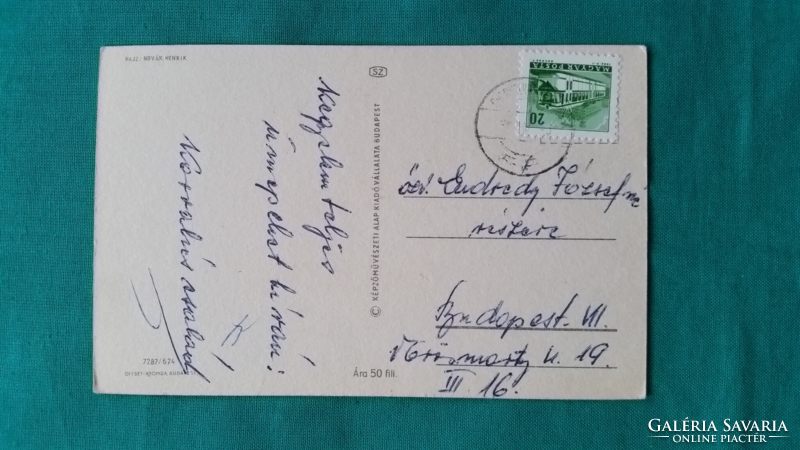 RAJZ: NOVÁK HENRIK
Kegyelemteljes
ünnepeket kíván:
Korvalus család
7787/674
OFFSET-NYOMDA, BUDAPEST
© KÉPZŐMŰVÉSZETI ALAP KIADÓ VÁLLALATA BUDAPEST
SZ
Ára 50 fill.
MAGYAR POSTA
20
özv. Endrédy Józsefné
részére
Budapest. III.
Vörösmarty u. 19.
III. 16.
GALÉRIA SAVARIA
ONLINE PIACTÉR